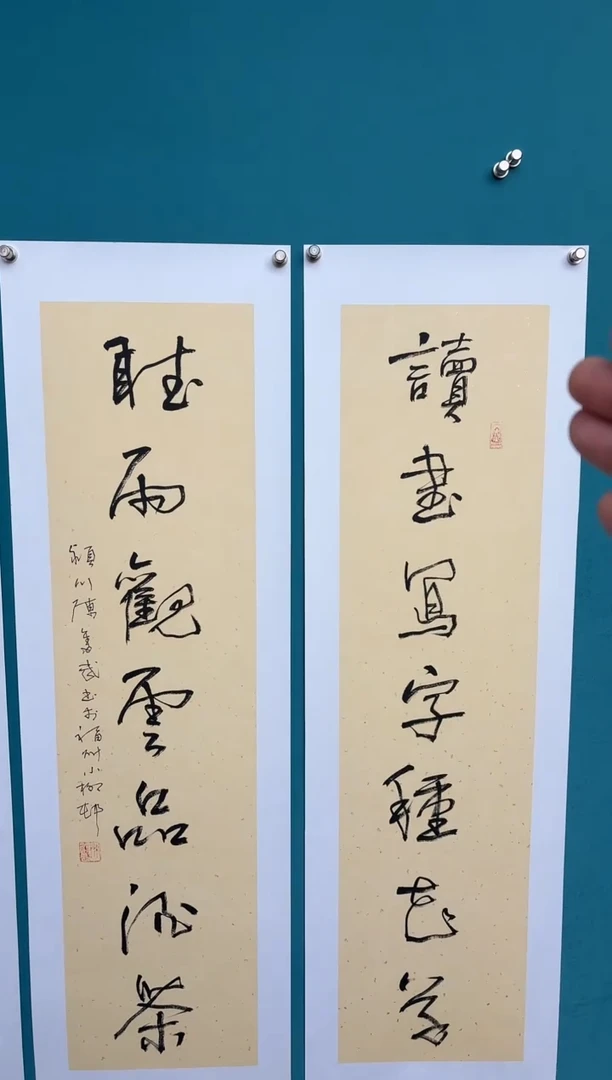 讀書寫字種花草
聽雨觀雲品酒茶
潁川陳武書於福州小柳邨